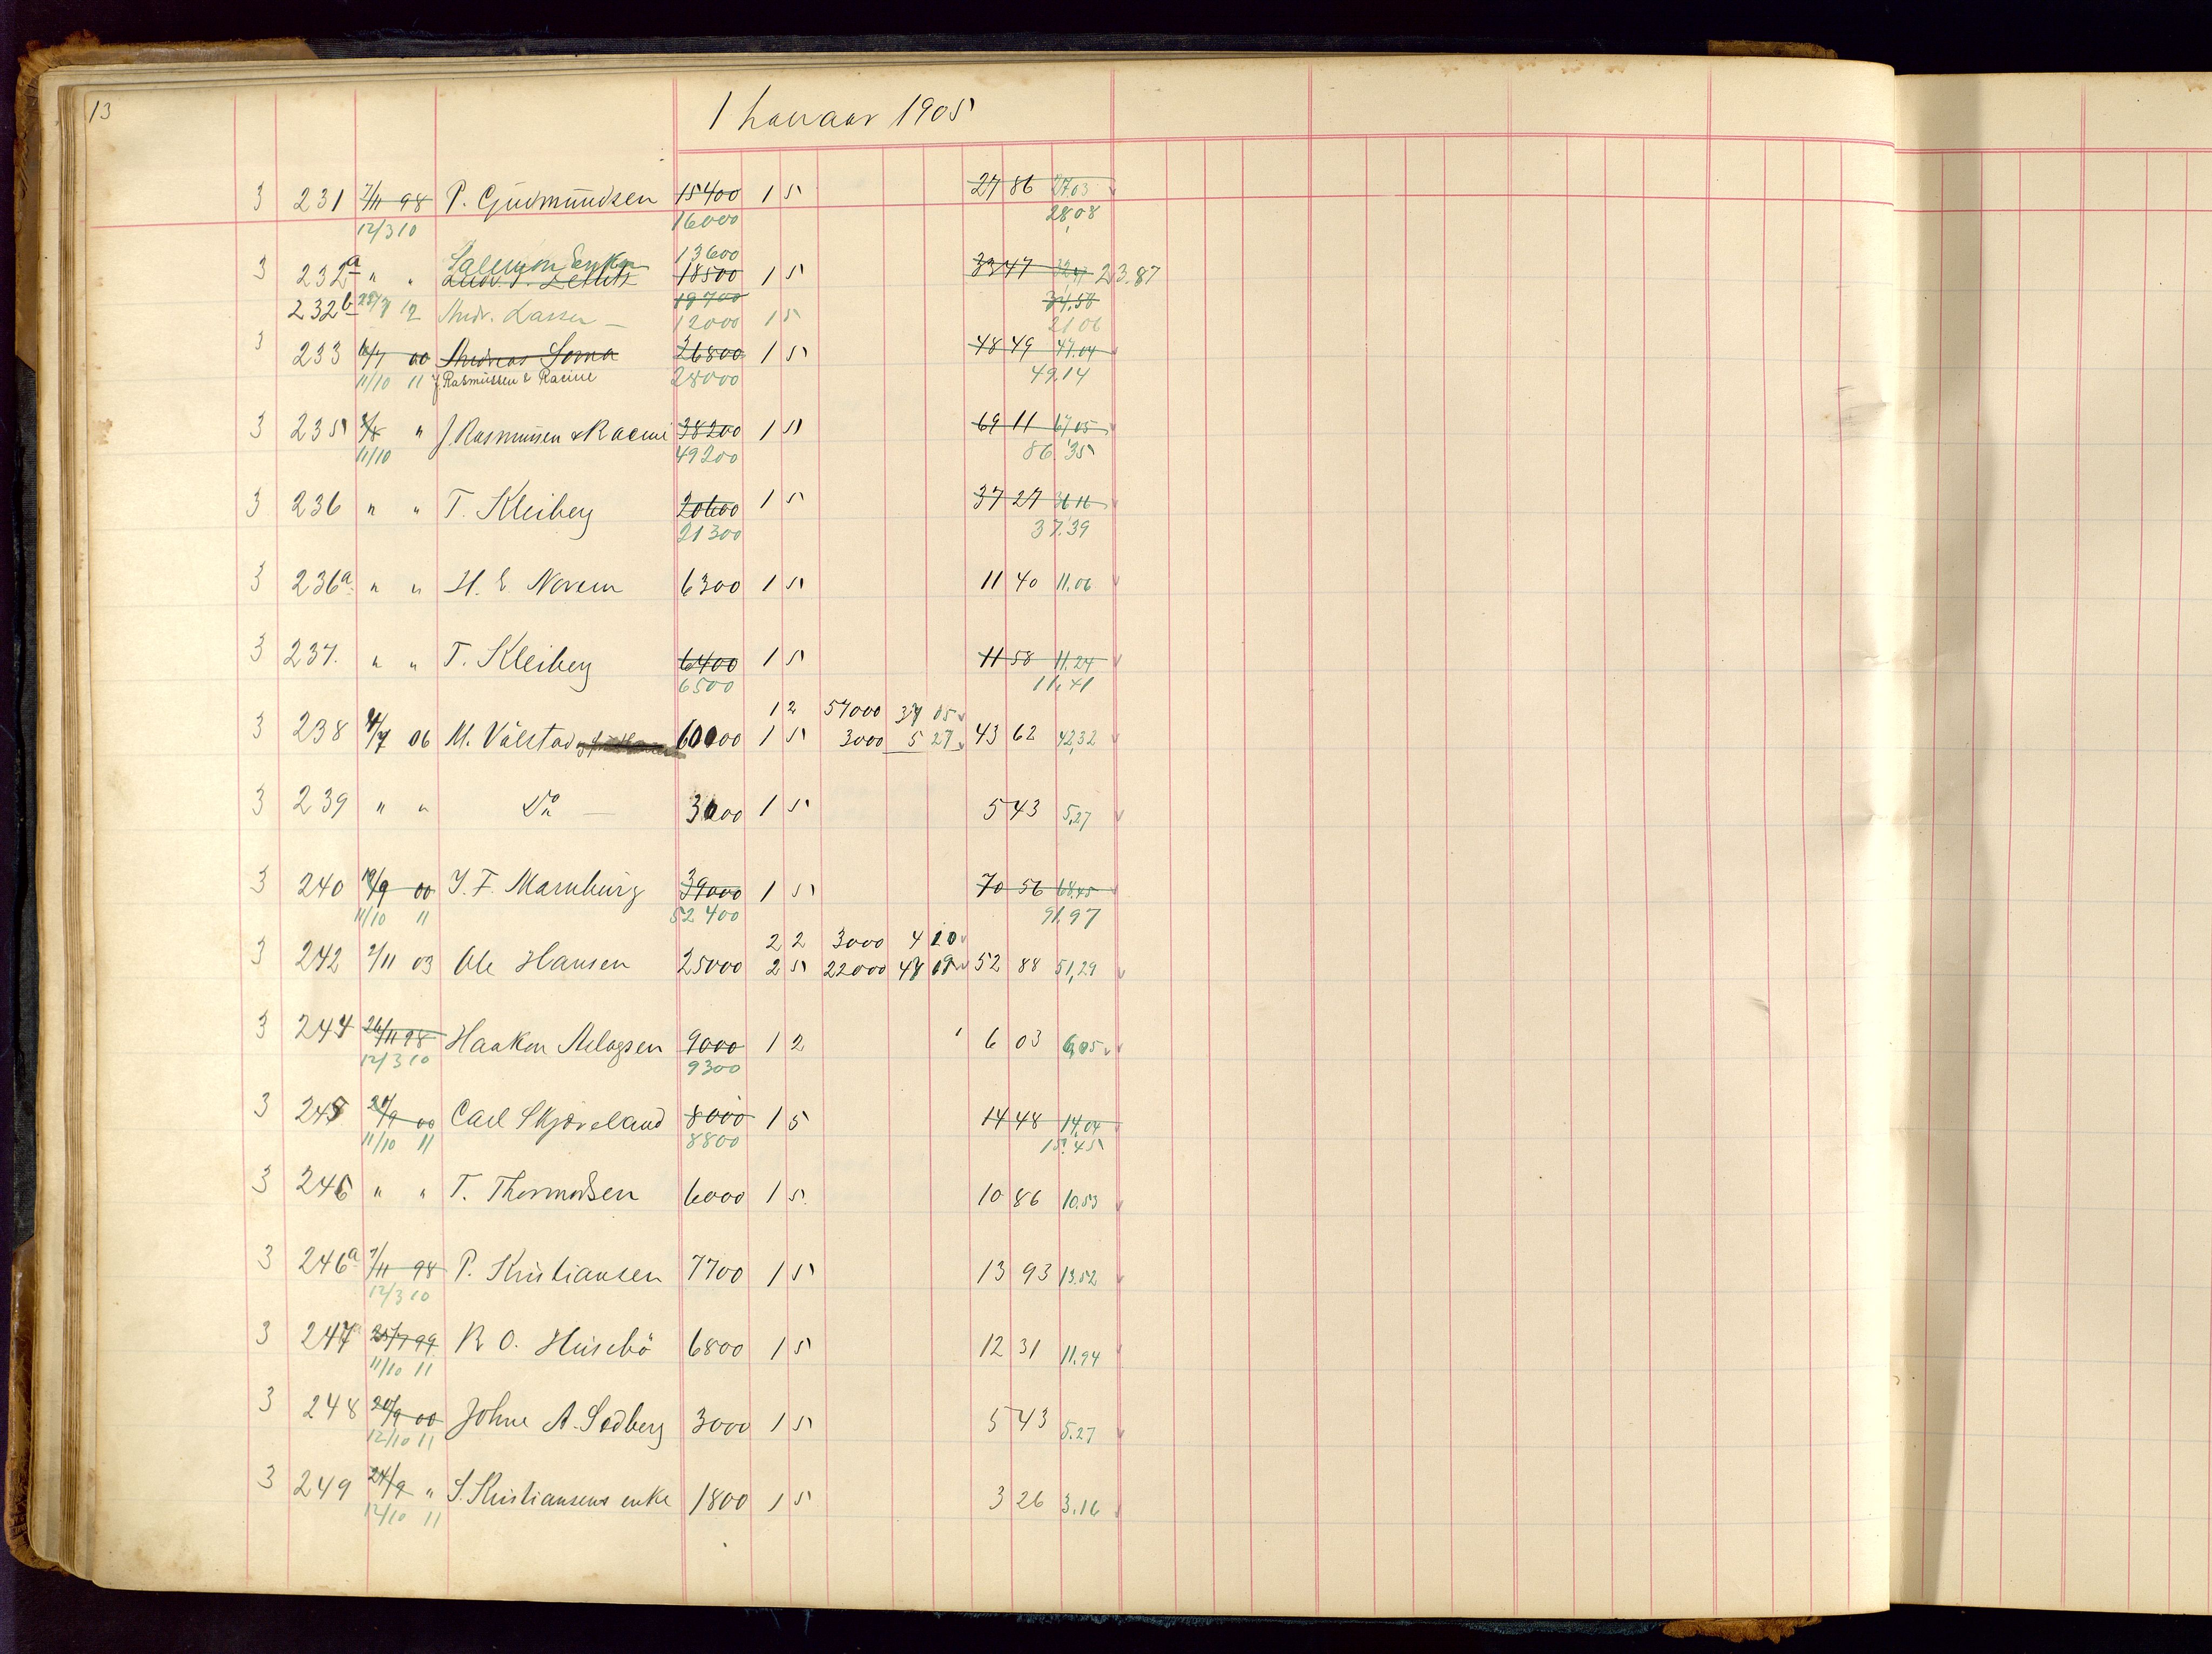 13
1 Januar 1905
3 231 7/11 98 P. Gudmundsen 15400 1 5 27 86 27.03
12/3 10 16000 28,08
Salemonsen 13600
3 232a " " 18500 1 5 33 47 23.87
19700 34,58
232b 12 Andr. Larsen — 12000 1 5 21 06
3 233 6/7 00 Andreas Soma 26800 1 5 48 49 47.04
11/10 11 J. Rasmussen & Racine 28000 49,14
3 235 " J. Rasmussen & Racine 38200 1 5 69 11 67,05
11/10 49200 86,35
3 236 " " T. Kleiberg 20600 1 5 37 27 36,16
21300 37,39
3 236a " " H. E. Norem 6300 1 5 11 40 11,06
3 237. " " T. Kleiberg 6400 1 5 11 58 11,24
6500 11,41
1 2 57000 37 05
3 238 06 M. Vålstad 60000 1 5 3000 5 27 43 62 42,32
3 239 " " Do — 3000 1 5 5 43 5,27
3 240 19/9 00 J. F. Marnburg 39000 1 5 70 56 68,45
11/10 11 52400 91,97
2 2 3000 4 20
3 242 7/11 03 Ole Hansen 25000 2 5 22000 52 88 51,29
3 244 26/11 98 Haakon Aslagsen 9000 1 2 6 03 6,05
12/3 10 9300
3 245 20/9 00 Carl Skjæveland 8000 1 5 14 48 14,04
11/10 11 8800 15,45
3 246 " " T. Thormodsen 6000 1 5 10 86 10.53
3 246a 7/11 98 P. Kristiansen 7700 1 5 13 93 13.52
12/3 10
3 247a 25/7 99 R. O. Husebö 6800 1 5 12 31 11.94
11/10 11
3 248 20/9 00 Johne A. Sodberg 3000 1 5 5 43 5.27
12/10 11
3 249 24/9 " S. Kristiansens enke 1800 1 5 3 26 3.16
12/10 11